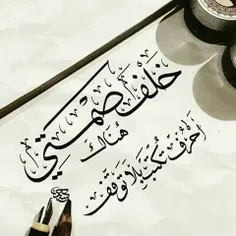 خلف صمتي
هناك
أحرف تكتب بلا توقف